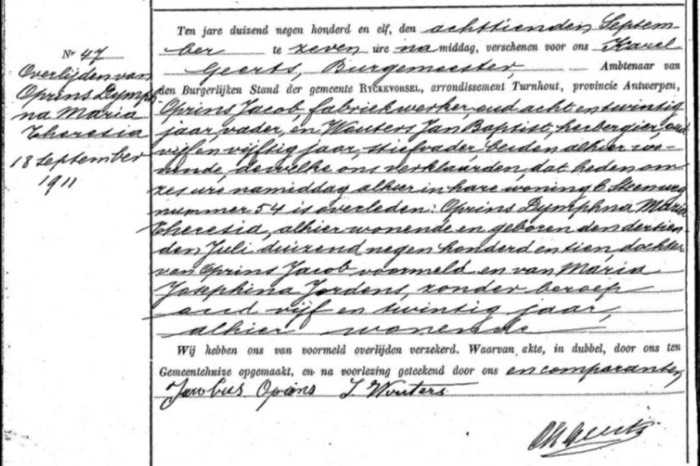 Nr 47
Overlijden van
Oprins Dymph
na Maria
Theresia
18 September
1911
Ten jare duizend negen honderd en elf, den achttienden Septem-
ber te zeven ure na middag, verschenen voor ons Karel
Geerts, Burgemeester, Ambtenaar van
den Burgerlijken Stand der gemeente RYCKEVORSEL, arrondissement Turnhout, provincie Antwerpen,
Oprins Jacob, fabriekwerker, oud acht en twintig
jaar vader, en Wouters Jan Baptist, herbergier, oud
vijf en vijftig jaar, stiefvader beiden alhier wo-
nende, dewelke ons verklaarden, dat heden om
zes ure namiddag alhier in hare woning Steenweg
nummer 54 is overleden: Oprins Dymphna Maria
Theresia, alhier wonende en geboren den dertien
den Juli duizend negen honderd en tien, dochter
van Oprins Jacob voormeld en van Maria
Josephina Jordens, zonder beroep
oud vijf en twintig jaar,
alhier wonende
Wij hebben ons van voormeld overlijden verzekerd. Waarvan akte, in dubbel, door ons ten
Gemeentehuize opgemaakt, en na voorlezing geteekend door ons en comparanten,
Jacobus Oprins J. Wouters
Geerts